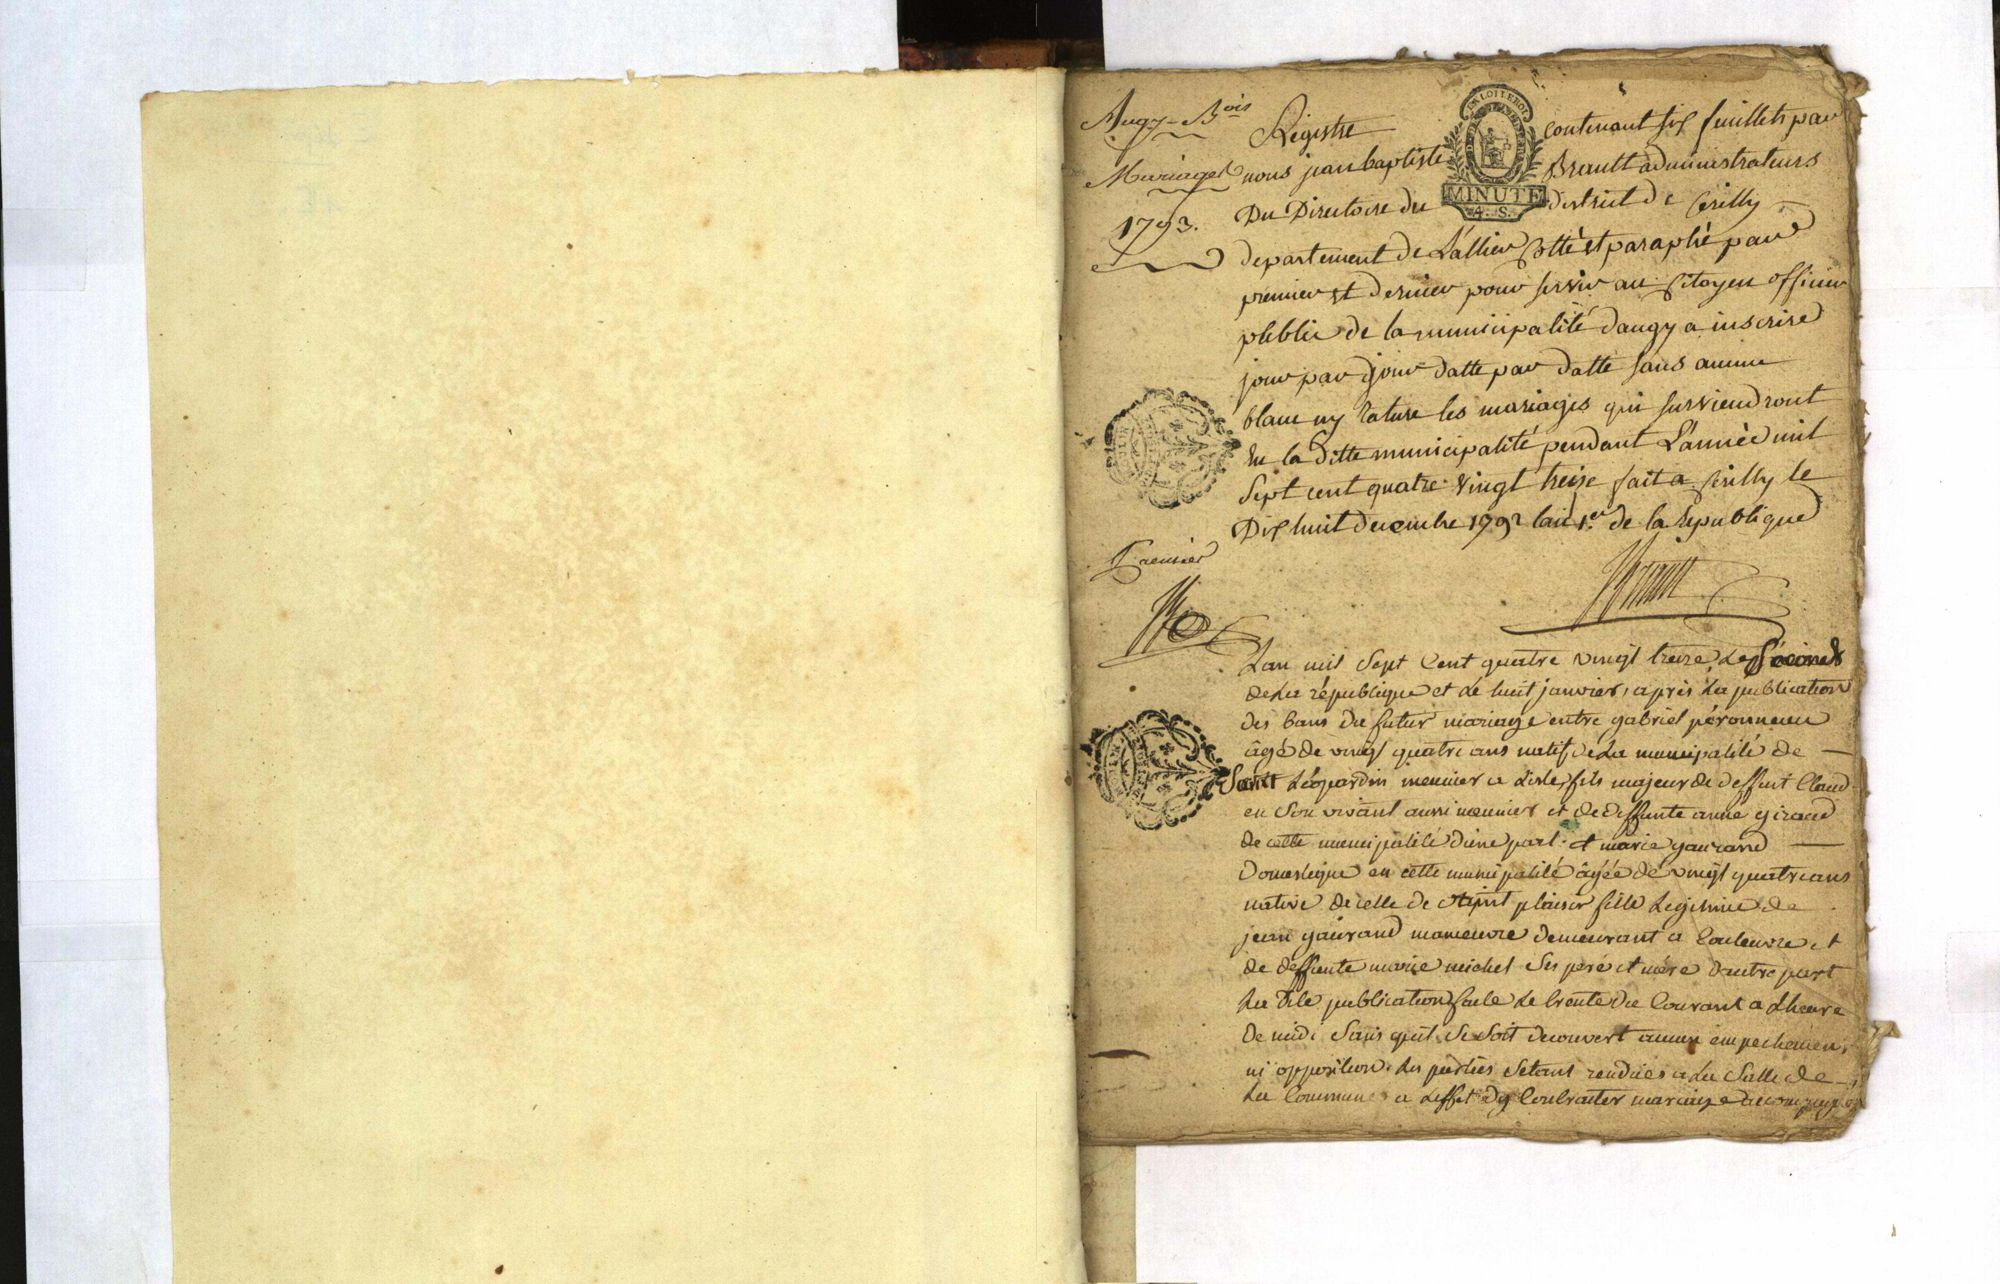 Augy-Bois
Mariages
1793.
Registre contenant six feuillets par
nous jean baptiste Brault administrateurs
Du Directoire du District de Cerilly
departement de L'allier Cotté et paraphé par
premier et dernier pour servir au Citoyen officier
publlic de la municipalité daugy a inscrire
jour par jour datte par datte sans aucun
blanc ny rature les mariages qui surviendront
En la ditte municipalité pendant L'année mil
Sept cent quatre vingt treize fait a Cerilly le
Dix huit decembre 1792 lan 1.er de la republique
MINUTE
4. S.
Premier
Lan mil Sept Cent quatre vingt treize Le Sécond
de La république et Le huit janvier, après La publication
des bans du futur mariage entre gabriel péronneau
âgé de vingt quatre ans natif de La municipalité de
Saint Léopardin meunier a Lisle, fils majeur de deffunt Claud
en Son vivant aussi meunier et de deffunte anne giraud
de cette municipalité d'une part. et marie gaurand
Domestique en cette municipalité âgée de vingt quatre ans
native de celle de saint plaisir fille Légitime de
jean gaurand manoeuvre demeurant a Couleuvre et
de deffunte marie michel Ses peré et mére dautre part
La dite publication faite Le trente du Courant a Lheure
de midi Sans quil Se Soit decouvert aucun empechemen
ni opposition. Les parties Setant rendües a La Salle de
La Commune a Leffet dy Contracter mariage